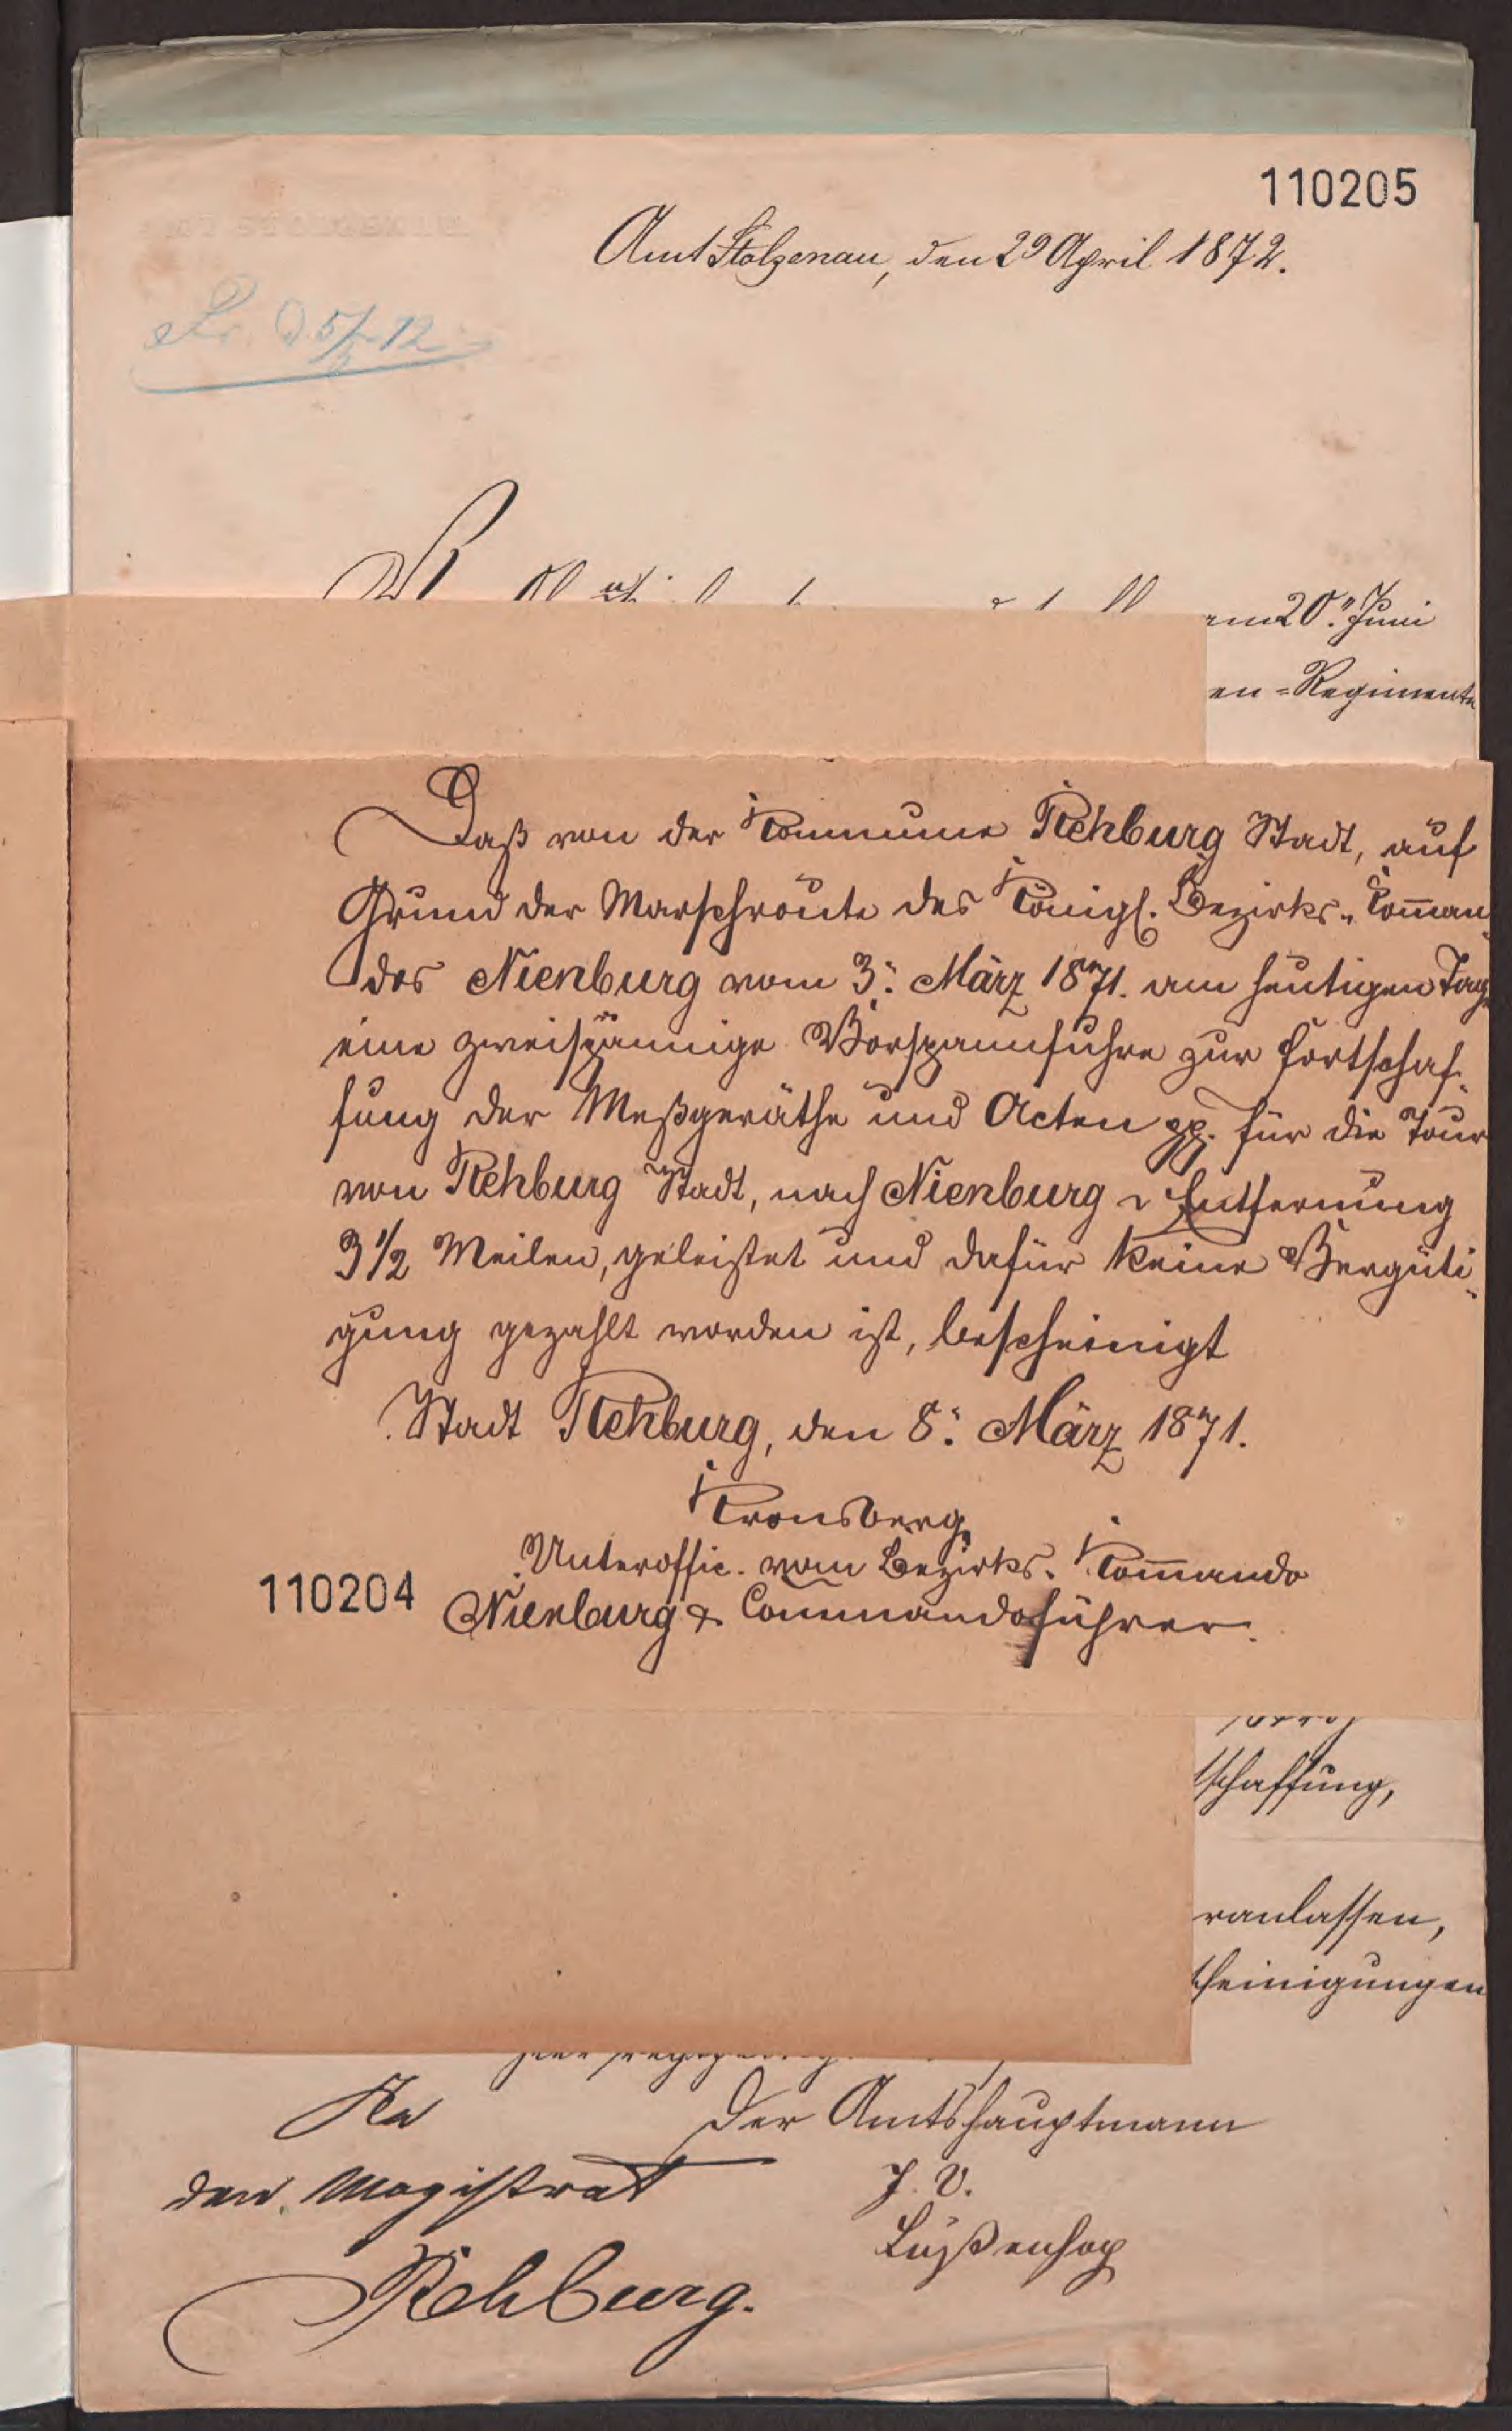 110205
Amt Stolzenau, den 29 April 1872.
am 20.ten Juni
en-Regimente
Daß von der Kommune Rehburg Stadt, auf
Grund der Marschroute des Königl. Bezirks-Comman-
dos Nienburg vom 3. März 1871. am heutigen Tage
eine zweispännige Vorspannfuhre zur Fortschaf-
fung der Meßgeräthe und Acten pp. für die Tour
von Rehburg Stadt, nach Nienburg Entfernung
3 1/2 Meilen, geleistet und dafür keine Vergüti-
gung gezahlt worden ist, bescheinigt
Stadt Rehburg, den 8. März 1871.
Kronsberg,
Unteroffic. vom Bezirks-Kommando
110204
Nienburg & Commandoführer.
schaffung,
ranlassen,
cheinigungen
An
den Magistrat
Rehburg.
Der Amtshauptmann
J. V.